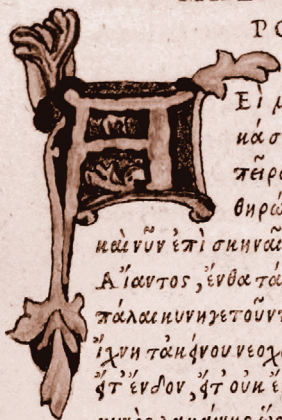 ΡΟ
Α Εἰ μ
κά σ
πεῖρα
θηρώ
καὶ νῦν ἐπὶ σκηναῖ
Αἴαντος, ἔνθα τά
πάλαι κυνηγετοῦντ
ἴχνη τὰ κείνου νεοχ
εἴτ' ἔνδον, εἴτ' οὐκ ἔ